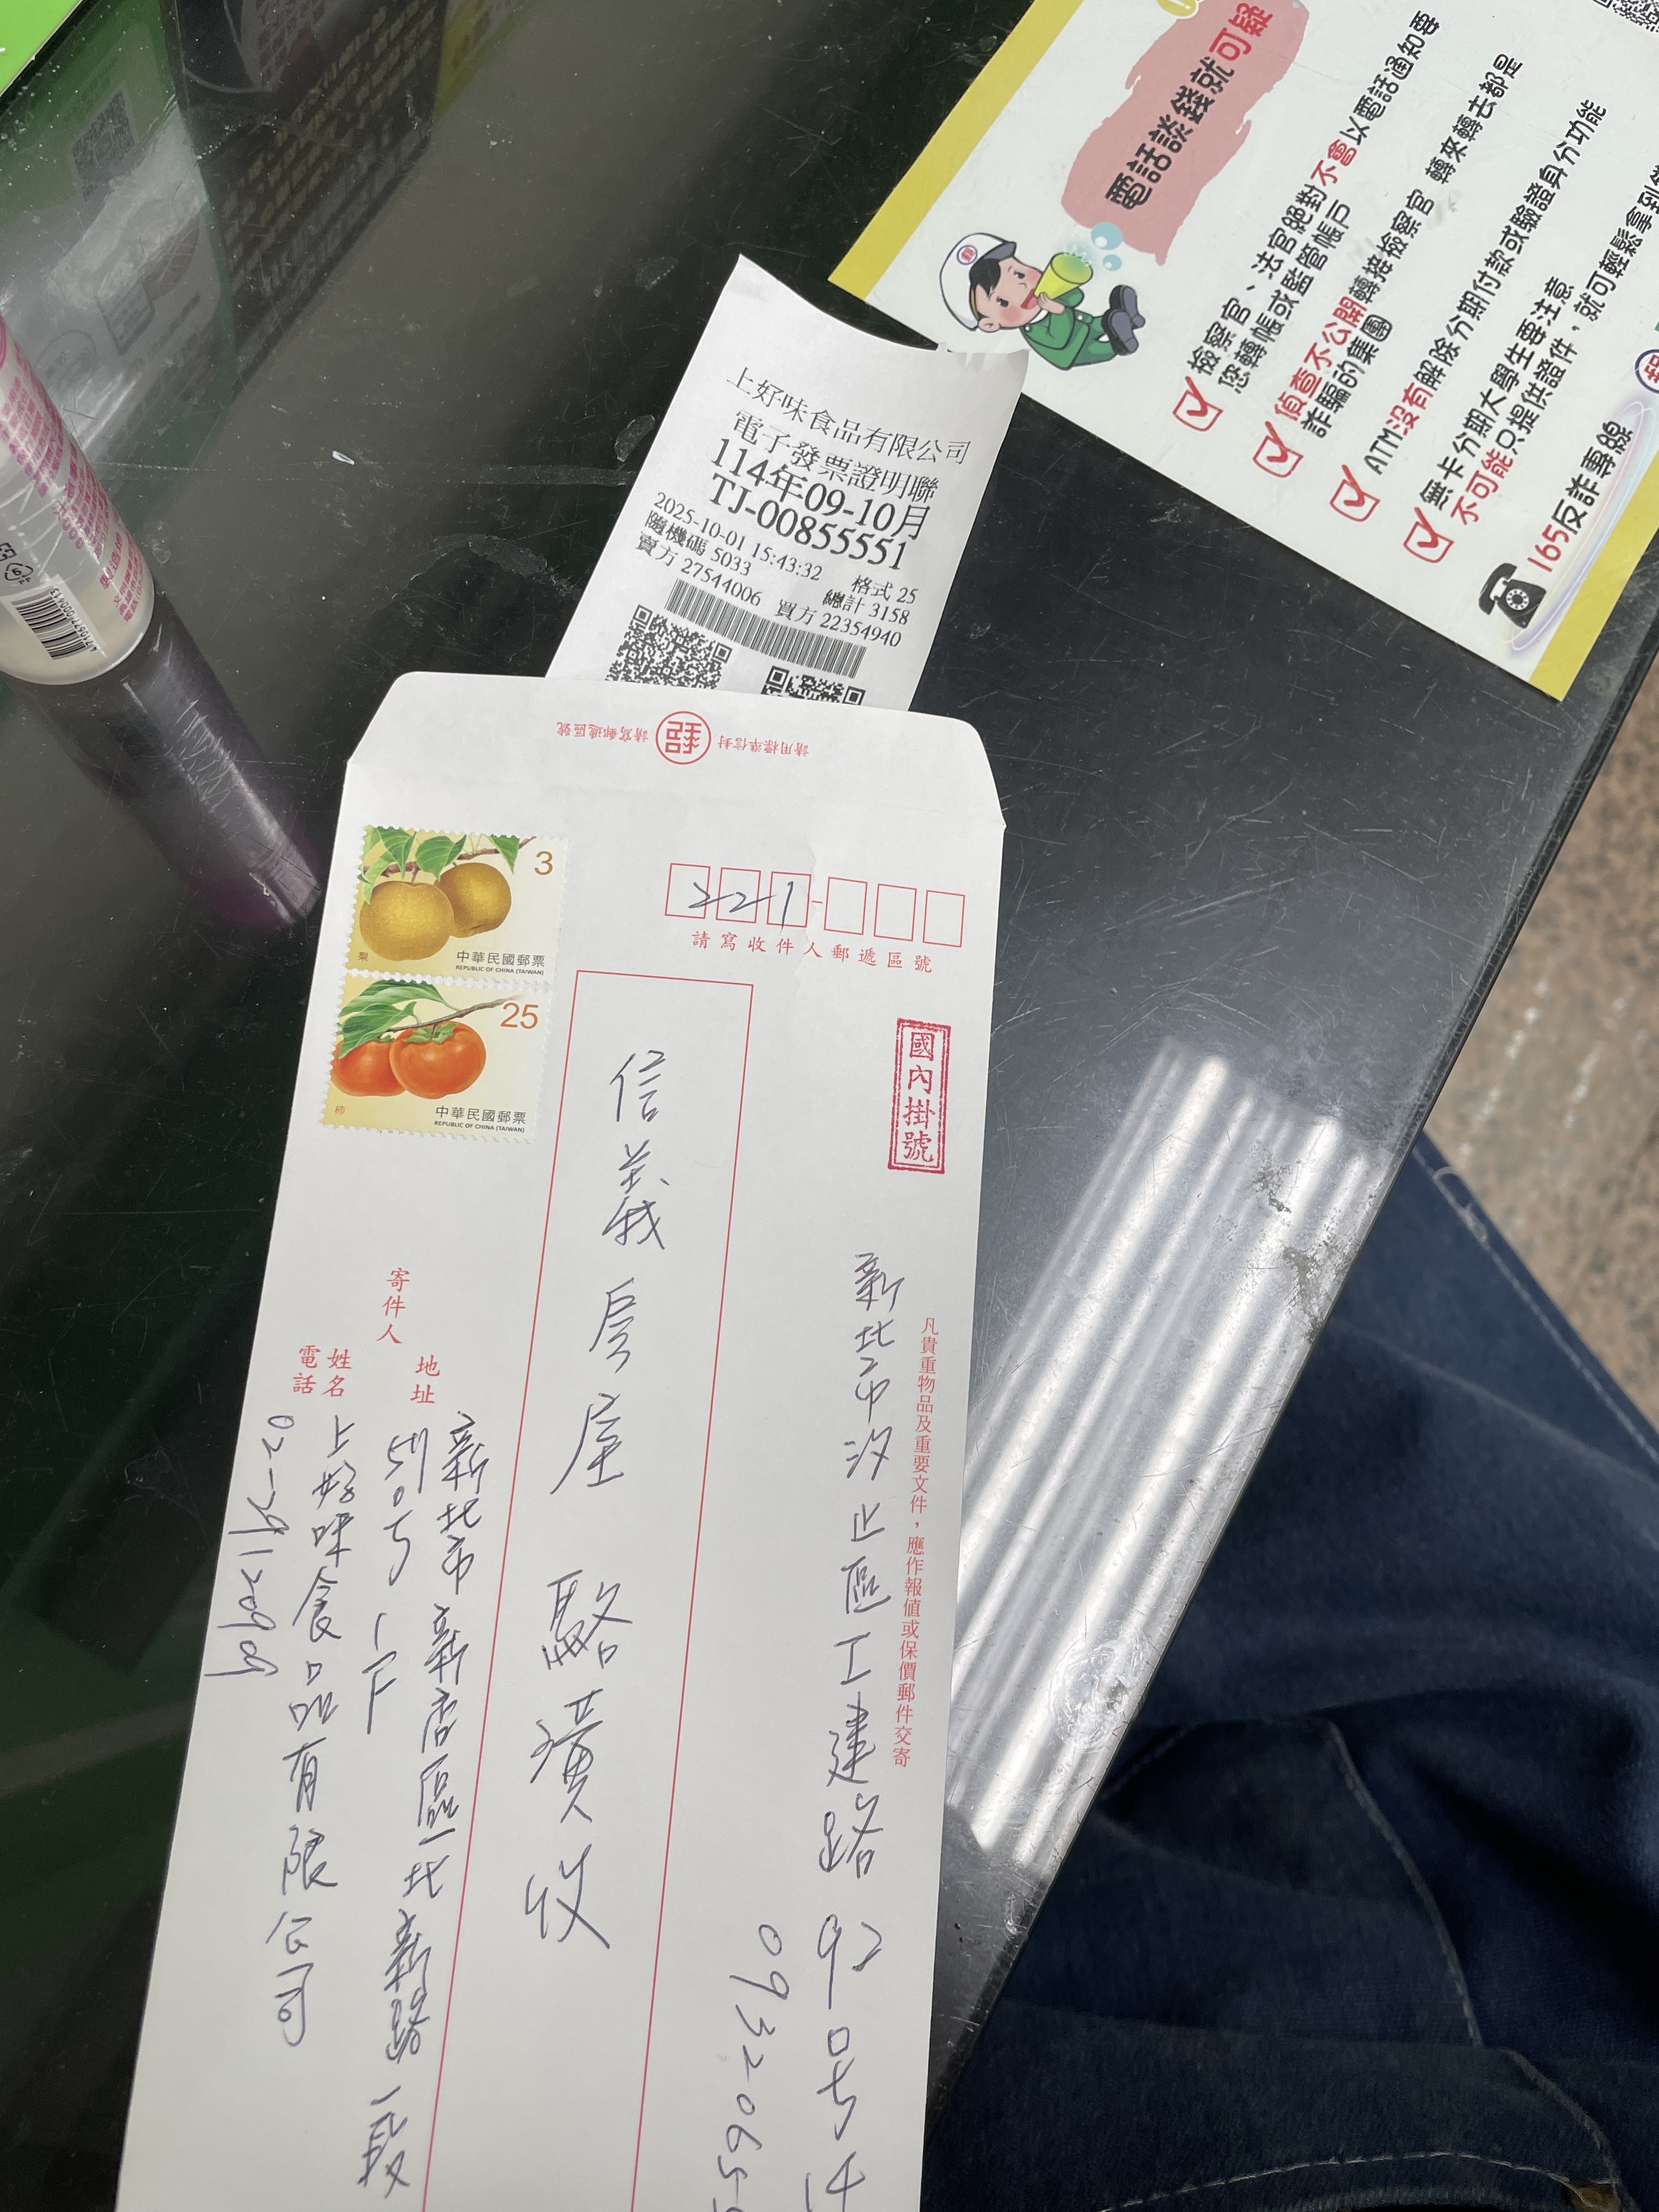 電話談錢就可疑
檢察官、法官絕對不會以電話通知要
您轉帳或監管帳戶
偵查不公開轉接檢察官 轉來轉去都是
詐騙的集團
ATM沒有解除分期付款或驗證身分功能
無卡分期大學生要注意
不可能只提供證件,就可輕鬆拿到
165反詐專線
上好味食品有限公司
電子發票證明聯
114年09-10月
TJ-00855551
2025-10-01 15:43:32 格式 25
隨機碼 5033 總計 3158
賣方 27544006 買方 22354940
請用標準信封 請寫郵遞區號
3
梨
中華民國郵票
REPUBLIC OF CHINA (TAIWAN)
25
柿
中華民國郵票
REPUBLIC OF CHINA (TAIWAN)
221
請寫收件人郵遞區號
國內掛號
凡貴重物品及重要文件,應作報值或保價郵件交寄
新北市汐止區工建路92号14
0932065
信義房屋 駱璜收
寄件人
地址
新北市新店區北新路一段
1F
姓名
上好味食品有限公司
電話
4710957000613